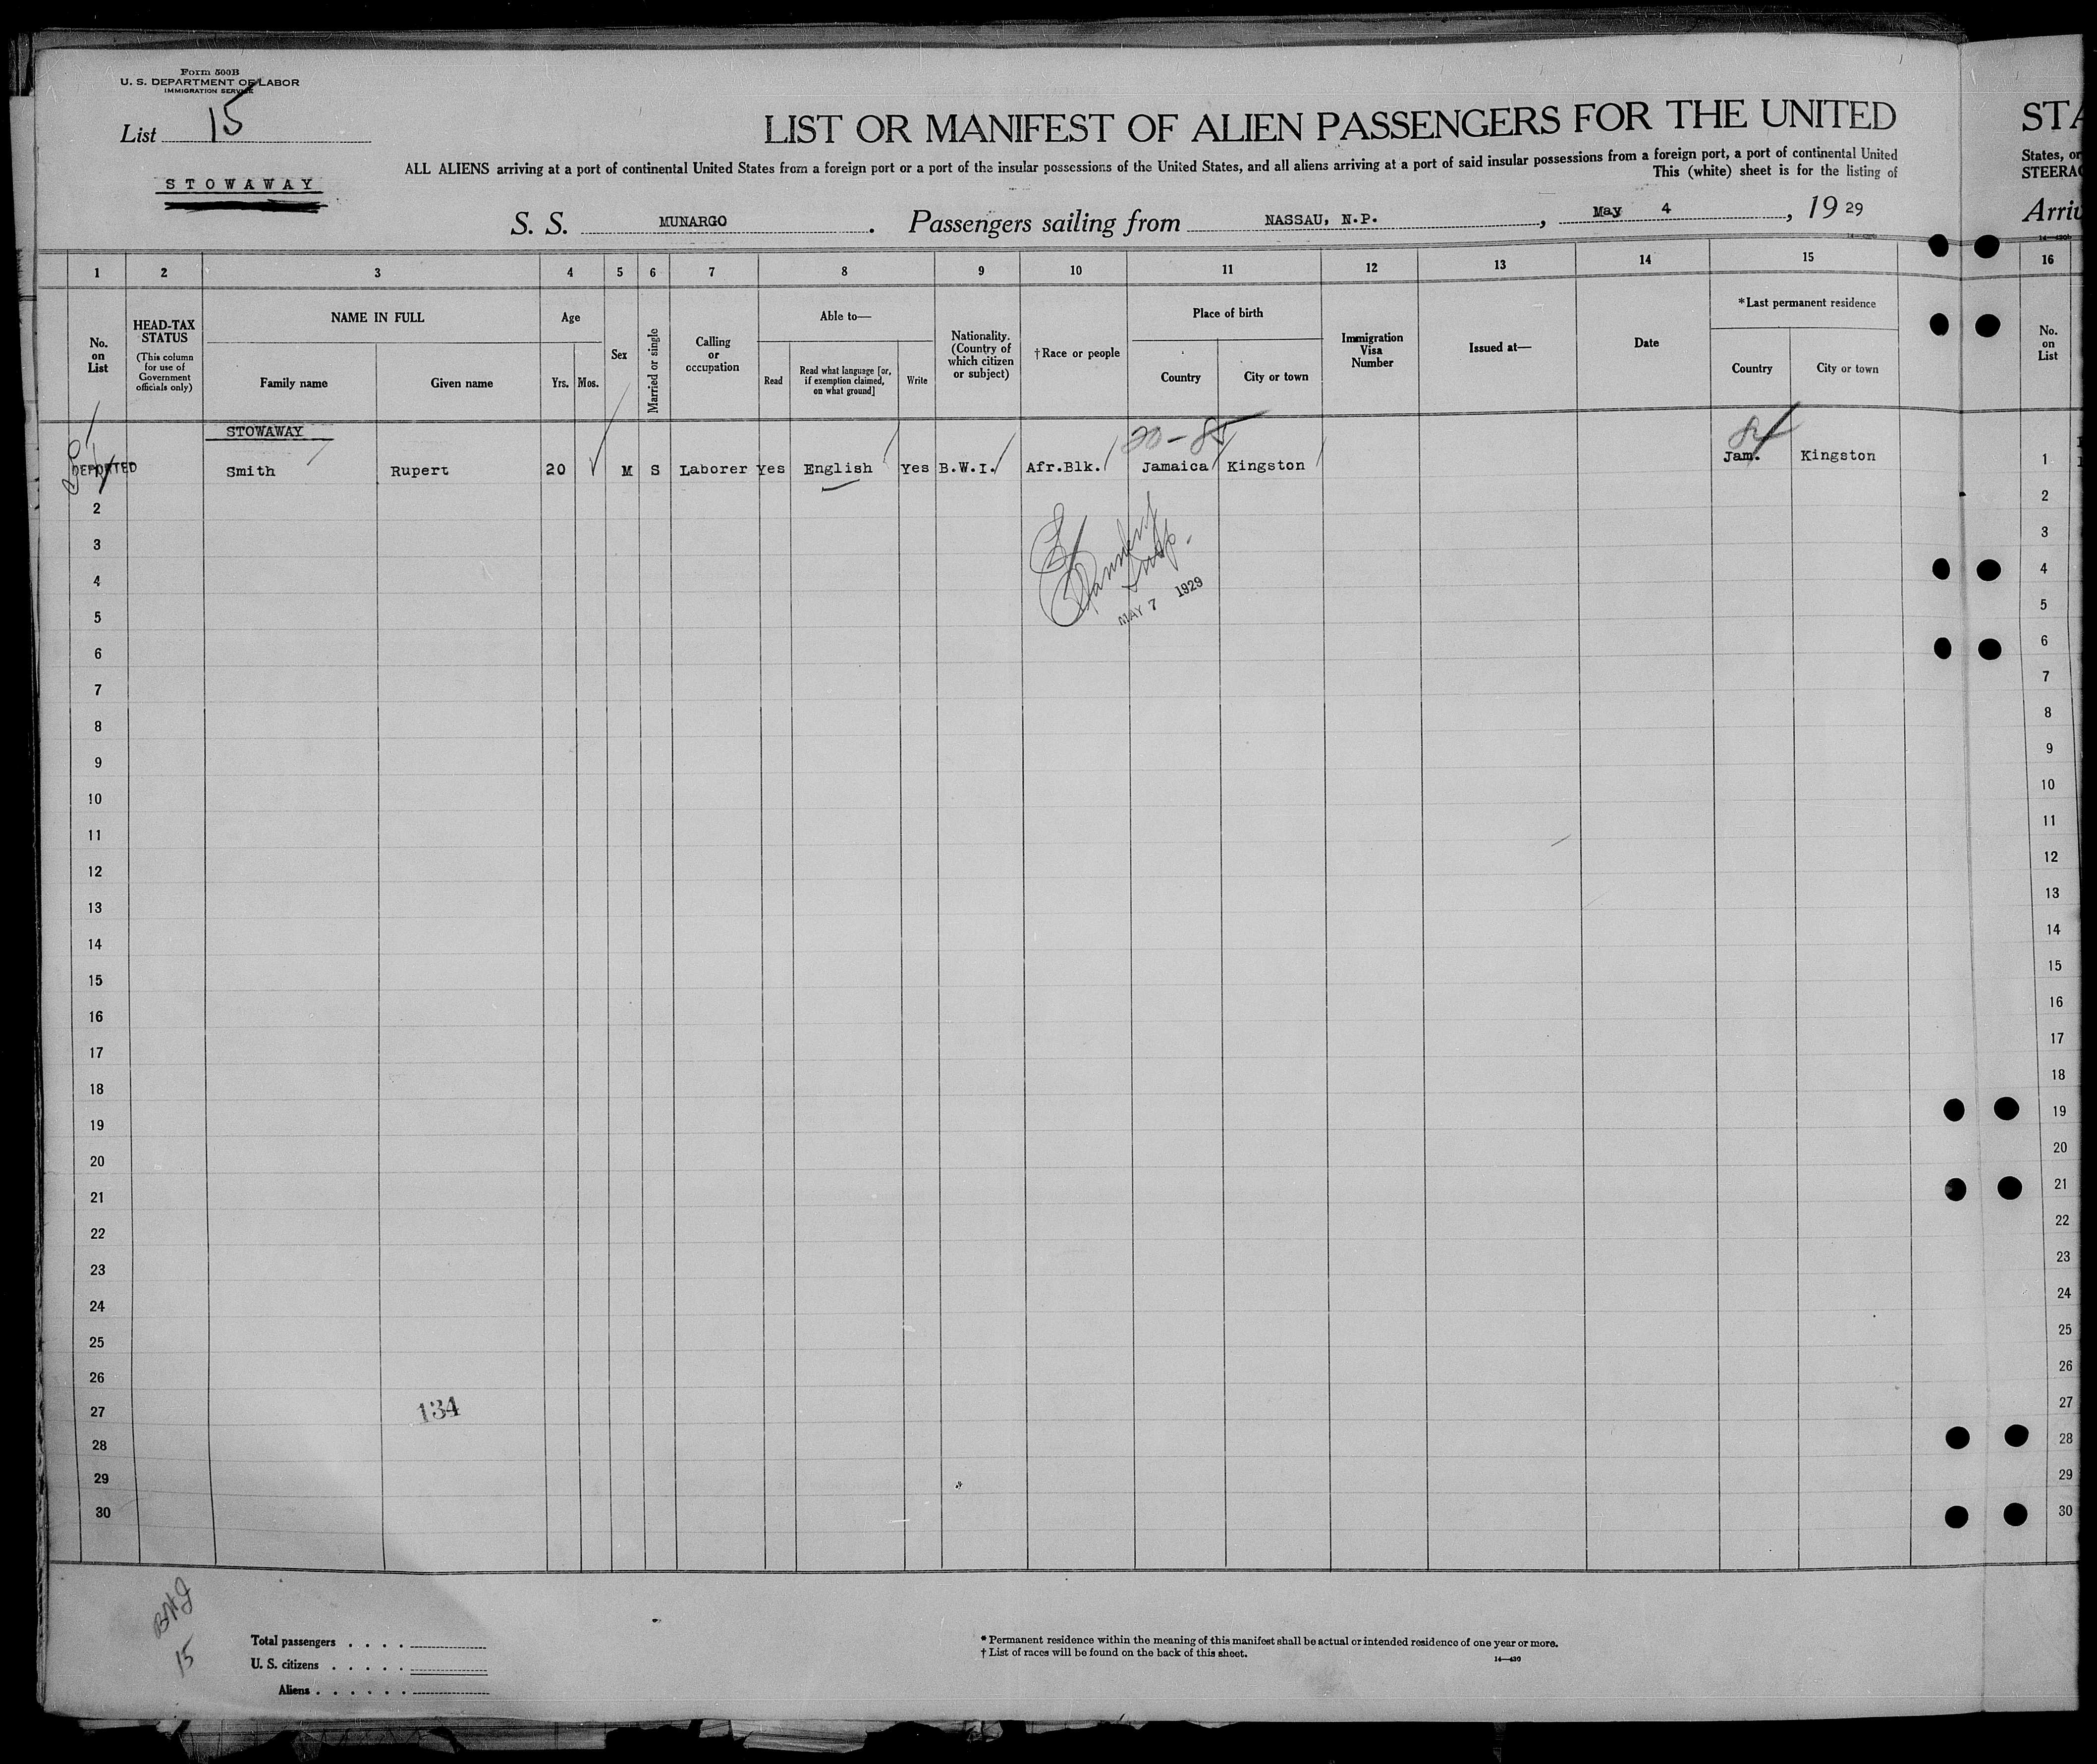 Form 500B
U. S. DEPARTMENT OF LABOR
IMMIGRATION SERVICE
List 15
STOWAWAY
LIST OR MANIFEST OF ALIEN PASSENGERS FOR THE UNITED
ALL ALIENS arriving at a port of continental United States from a foreign port or a port of the insular possessions of the United States, and all aliens arriving at a port of said insular possessions from a foreign port, a port of continental United
This (white) sheet is for the listing of
S. S. MUNARGO. Passengers sailing from NASSAU, N.P., May 4, 1929
STA
States, or
STEERAG
Arriv
1 2 3 4 5 6 7 8 9 10 11 12 13 14 15 16
No. on List
HEAD-TAX STATUS
(This column for use of Government officials only)
NAME IN FULL
Family name
Given name
Age
Yrs.
Mos.
Sex
Married or single
Calling or occupation
Able to—
Read
Read what language [or, if exemption claimed, on what ground]
Write
Nationality. (Country of which citizen or subject)
†Race or people
Place of birth
Country
City or town
Immigration Visa Number
Issued at—
Date
*Last permanent residence
Country
City or town
No. on List
STOWAWAY
20-85
DEPORTED Smith Rupert 20 M S Laborer Yes English Yes B.W.I. Afr.Blk. Jamaica Kingston Jam. Kingston 1
2 2
3 3
4 4
5 5
6 6
7 7
8 8
9 9
10 10
11 11
12 12
13 13
14 14
15 15
16 16
17 17
18 18
19 19
20 20
21 21
22 22
23 23
24 24
25 25
26 26
27 27
28 28
29 29
30 30
Insp.
MAY 7 1929
134
BHJ
15
Total passengers . . . .
U. S. citizens . . . . .
Aliens . . . . . .
* Permanent residence within the meaning of this manifest shall be actual or intended residence of one year or more.
† List of races will be found on the back of this sheet.
14—430